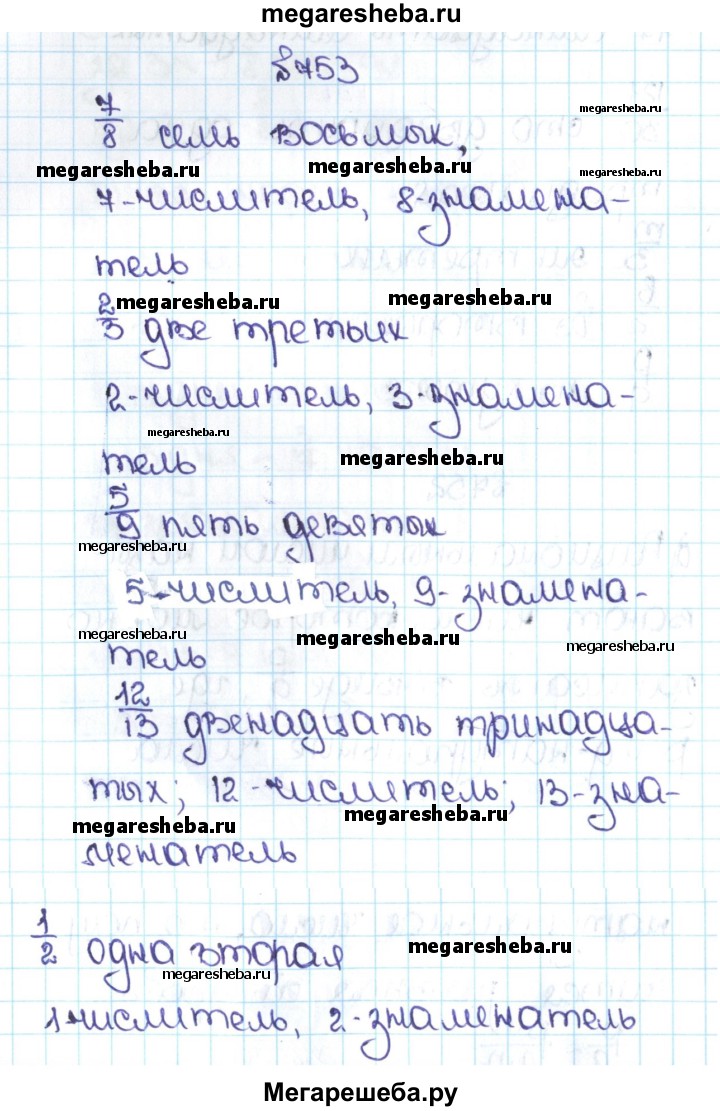 megaresheba.ru
№753
7/8 семь восьмых,
megaresheba.ru
megaresheba.ru
megaresheba.ru
megaresheba.ru
7-числитель, 8-знамена-
тель
megaresheba.ru
megaresheba.ru
2/3 две третьих
2-числитель, 3-знамена-
megaresheba.ru
тель
megaresheba.ru
5/9 пять девятых
megaresheba.ru
5-числитель, 9-знамена-
megaresheba.ru
megaresheba.ru
megaresheba.ru
тель
12/13 двенадцать тринадца-
тых; 12-числитель; 13-зна-
megaresheba.ru
megaresheba.ru
менатель
1/2 одна вторая
megaresheba.ru
megaresheba.ru
1-числитель, 2-знаменатель
Мегарешеба.ру